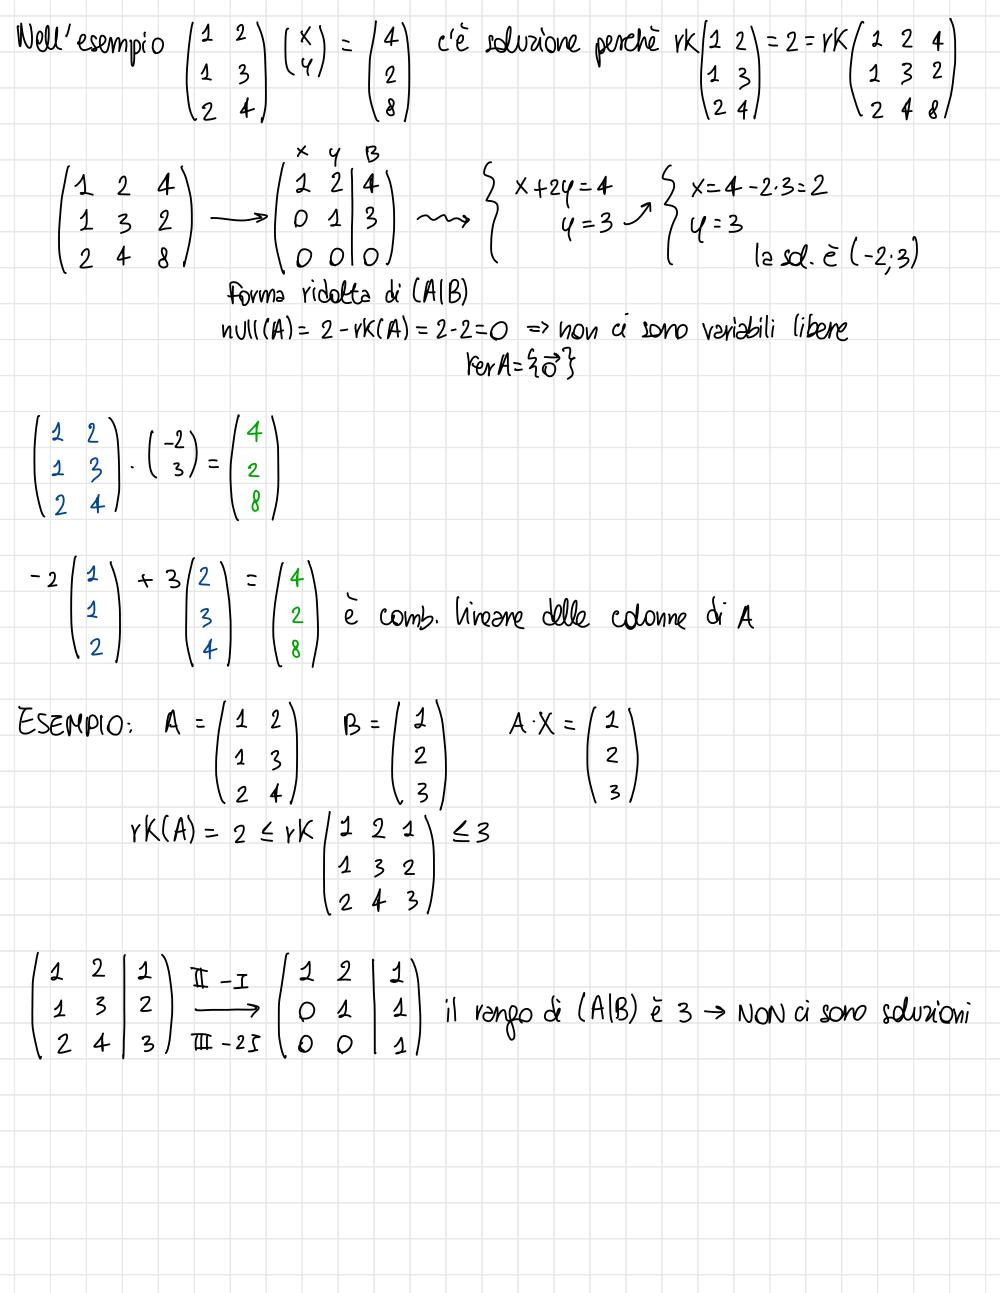 Nell'esempio (1 2; 1 3; 2 4) (x; y) = (4; 2; 8) c'è soluzione perchè rk(1 2; 1 3; 2 4) = 2 = rk(1 2 4; 1 3 2; 2 4 8)
x y B
(1 2 4; 1 3 2; 2 4 8) → (1 2 | 4; 0 1 | 3; 0 0 | 0) ⇝ { x+2y=4; y=3 ↗ { x=4-2·3=2; y=3
la sol. è (-2;3)
forma ridotta di (A|B)
null(A) = 2-rk(A) = 2-2=0 => non ci sono variabili libere
KerA={0⃗}
(1 2; 1 3; 2 4) · (-2; 3) = (4; 2; 8)
-2 (1; 1; 2) + 3 (2; 3; 4) = (4; 2; 8) è comb. lineare delle colonne di A
ESEMPIO: A = (1 2; 1 3; 2 4) B = (1; 2; 3) A·X = (1; 2; 3)
rk(A) = 2 ≤ rk (1 2 1; 1 3 2; 2 4 3) ≤ 3
(1 2 | 1; 1 3 | 2; 2 4 | 3) II-I → III-2I (1 2 | 1; 0 1 | 1; 0 0 | 1) il rango di (A|B) è 3 → NON ci sono soluzioni